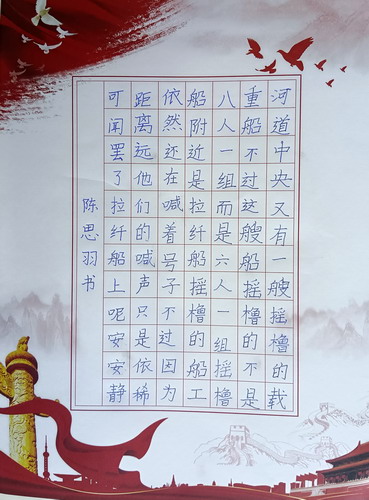 河道中央又有一艘摇橹的载
重船不过这艘船摇橹的不是
八人一组而是六人一组摇橹
船附近是拉纤船摇橹的船工
依然还在喊着号子不过因为
距离远他们的喊声只是依稀
可闻罢了拉纤船上呢安安静
陈思羽书